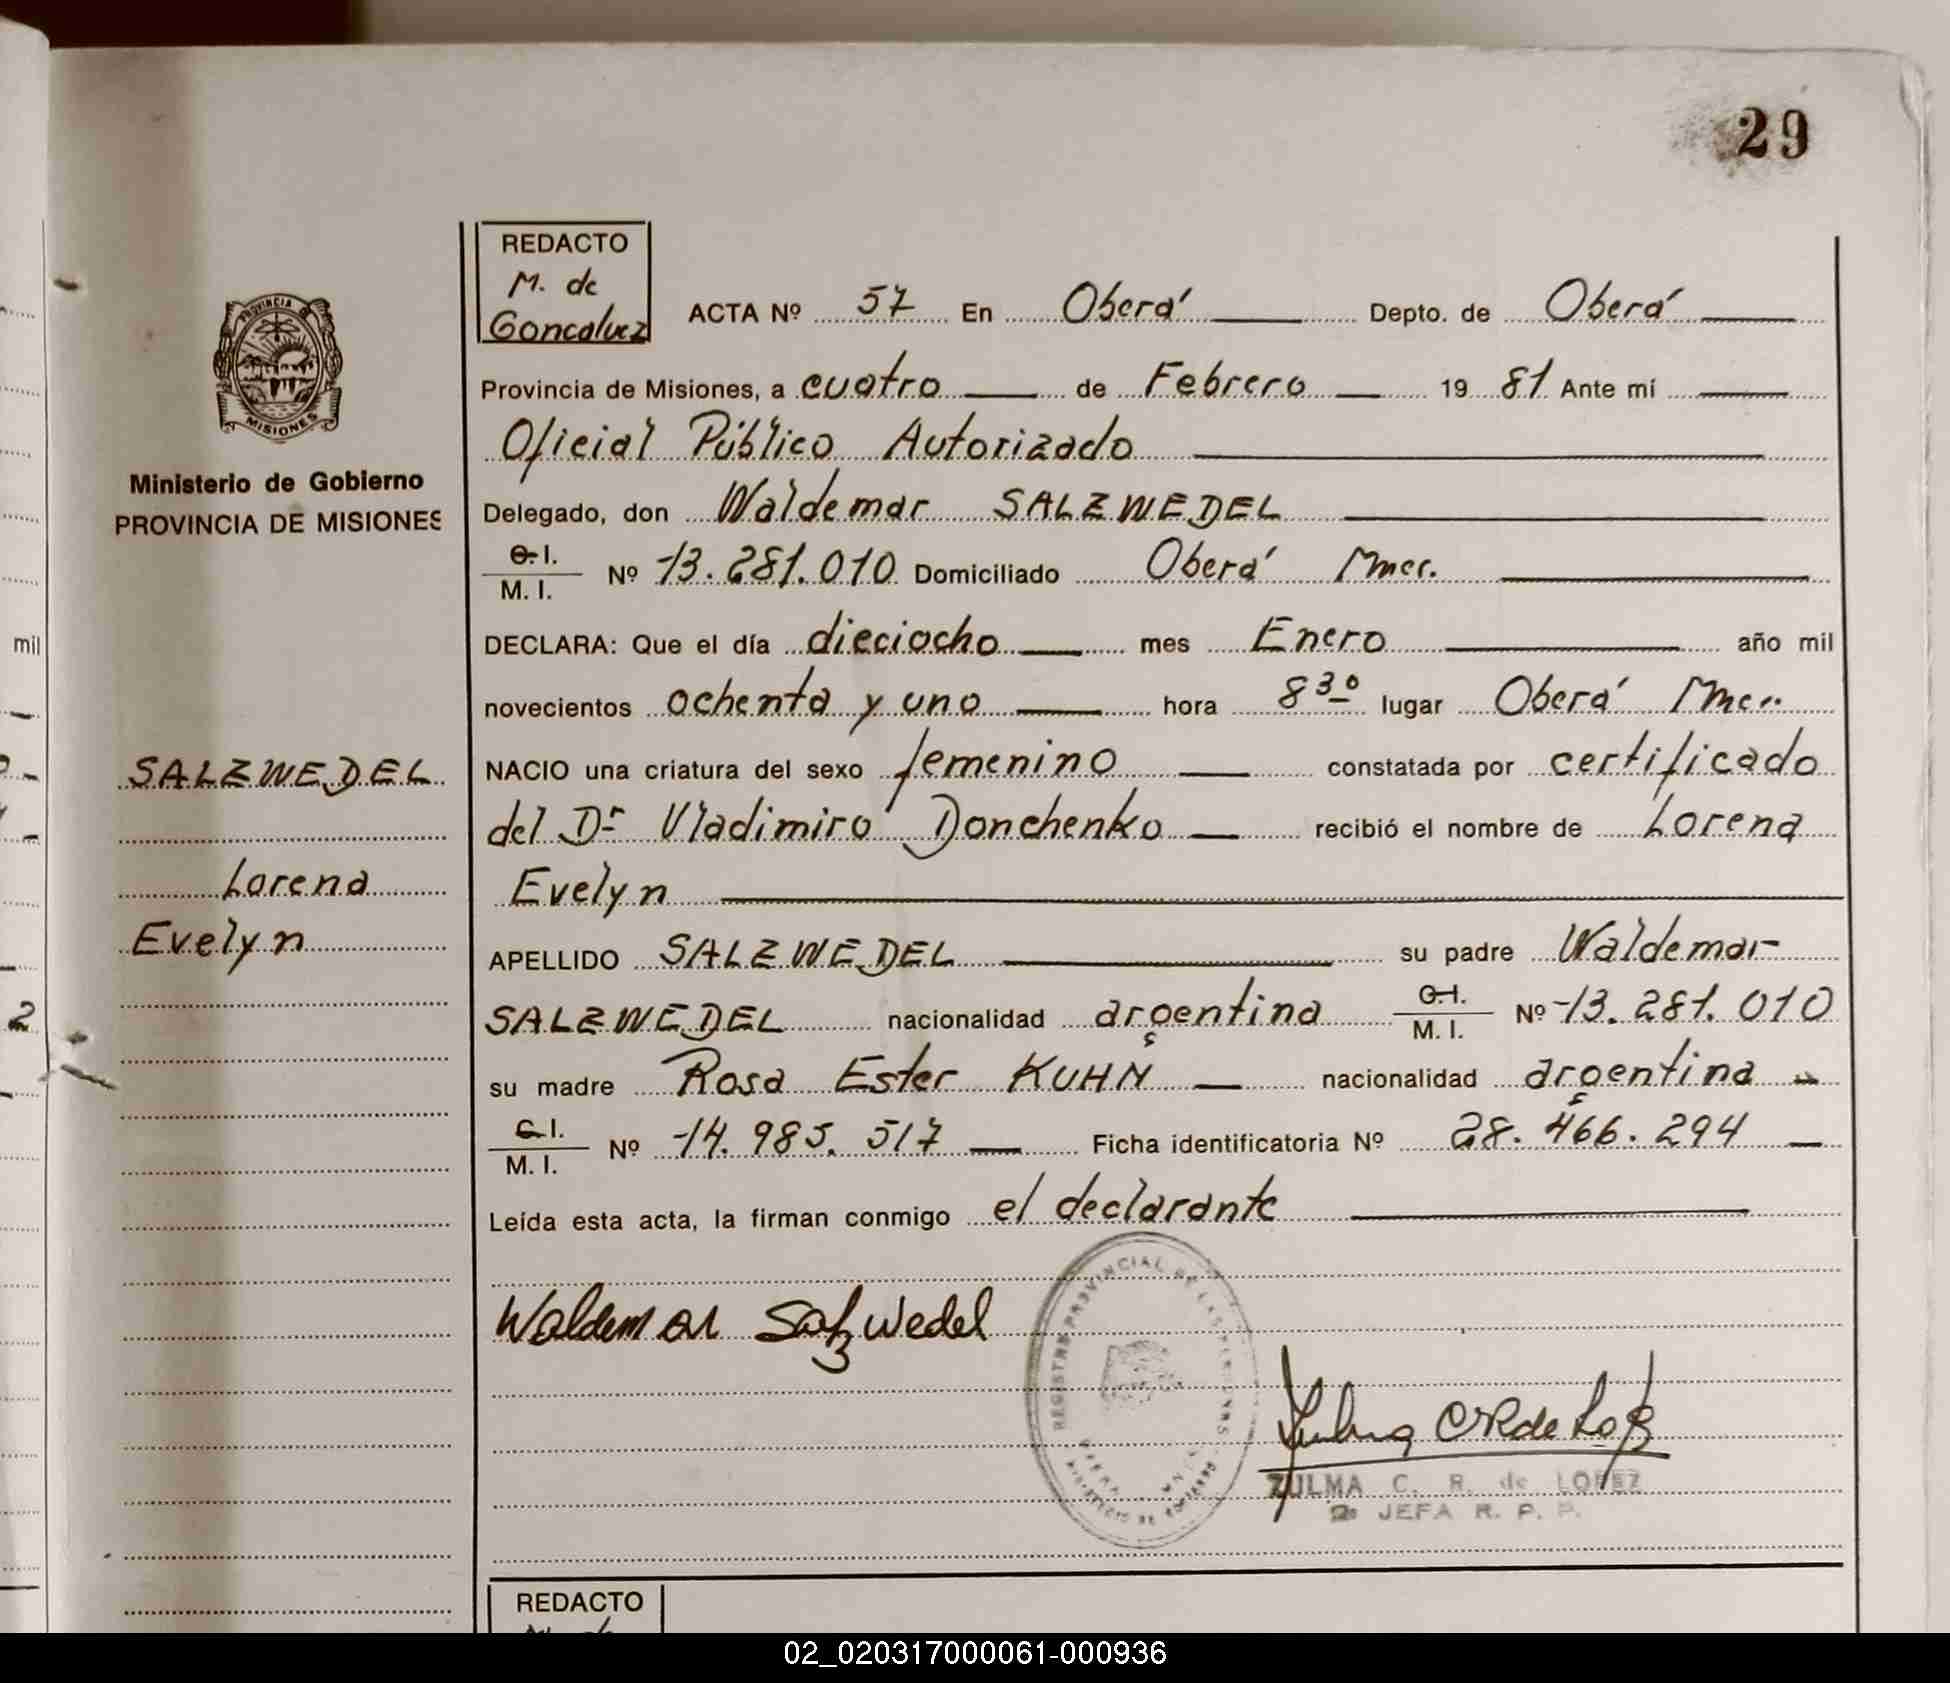 29
REDACTO
M. de
Goncalvez
ACTA Nº 57 En Oberá Depto. de Oberá
Provincia de Misiones, a cuatro de Febrero 19 81 Ante mí
Oficial Público Autorizado
Delegado, don Waldemar SALZWEDEL
C.I.
M. I. Nº 13.281.010 Domiciliado Oberá Mnes.
DECLARA: Que el día dieciocho mes Enero año mil
novecientos ochenta y uno hora 8 30 lugar Oberá Mnes.
NACIO una criatura del sexo femenino constatada por certificado
del Dr Vladimiro Donchenko recibió el nombre de Lorena
Evelyn
APELLIDO SALZWEDEL su padre Waldemar
SALZWEDEL nacionalidad argentina C.I. M. I. Nº 13.281.010
su madre Rosa Ester KUHN nacionalidad argentina
C.I.
M. I. Nº 14.985.517 Ficha identificatoria Nº 28.466.294
Leída esta acta, la firman conmigo el declarante
Waldemar Salzwedel
REGISTRO PROVINCIAL DE LAS PERSONAS
ZULMA C. R. de LOPEZ
JEFA R. P. P.
REDACTO
PROVINCIA
MISIONES
Ministerio de Gobierno
PROVINCIA DE MISIONES
SALZWEDEL
Lorena
Evelyn
mil
2
02_020317000061-000936